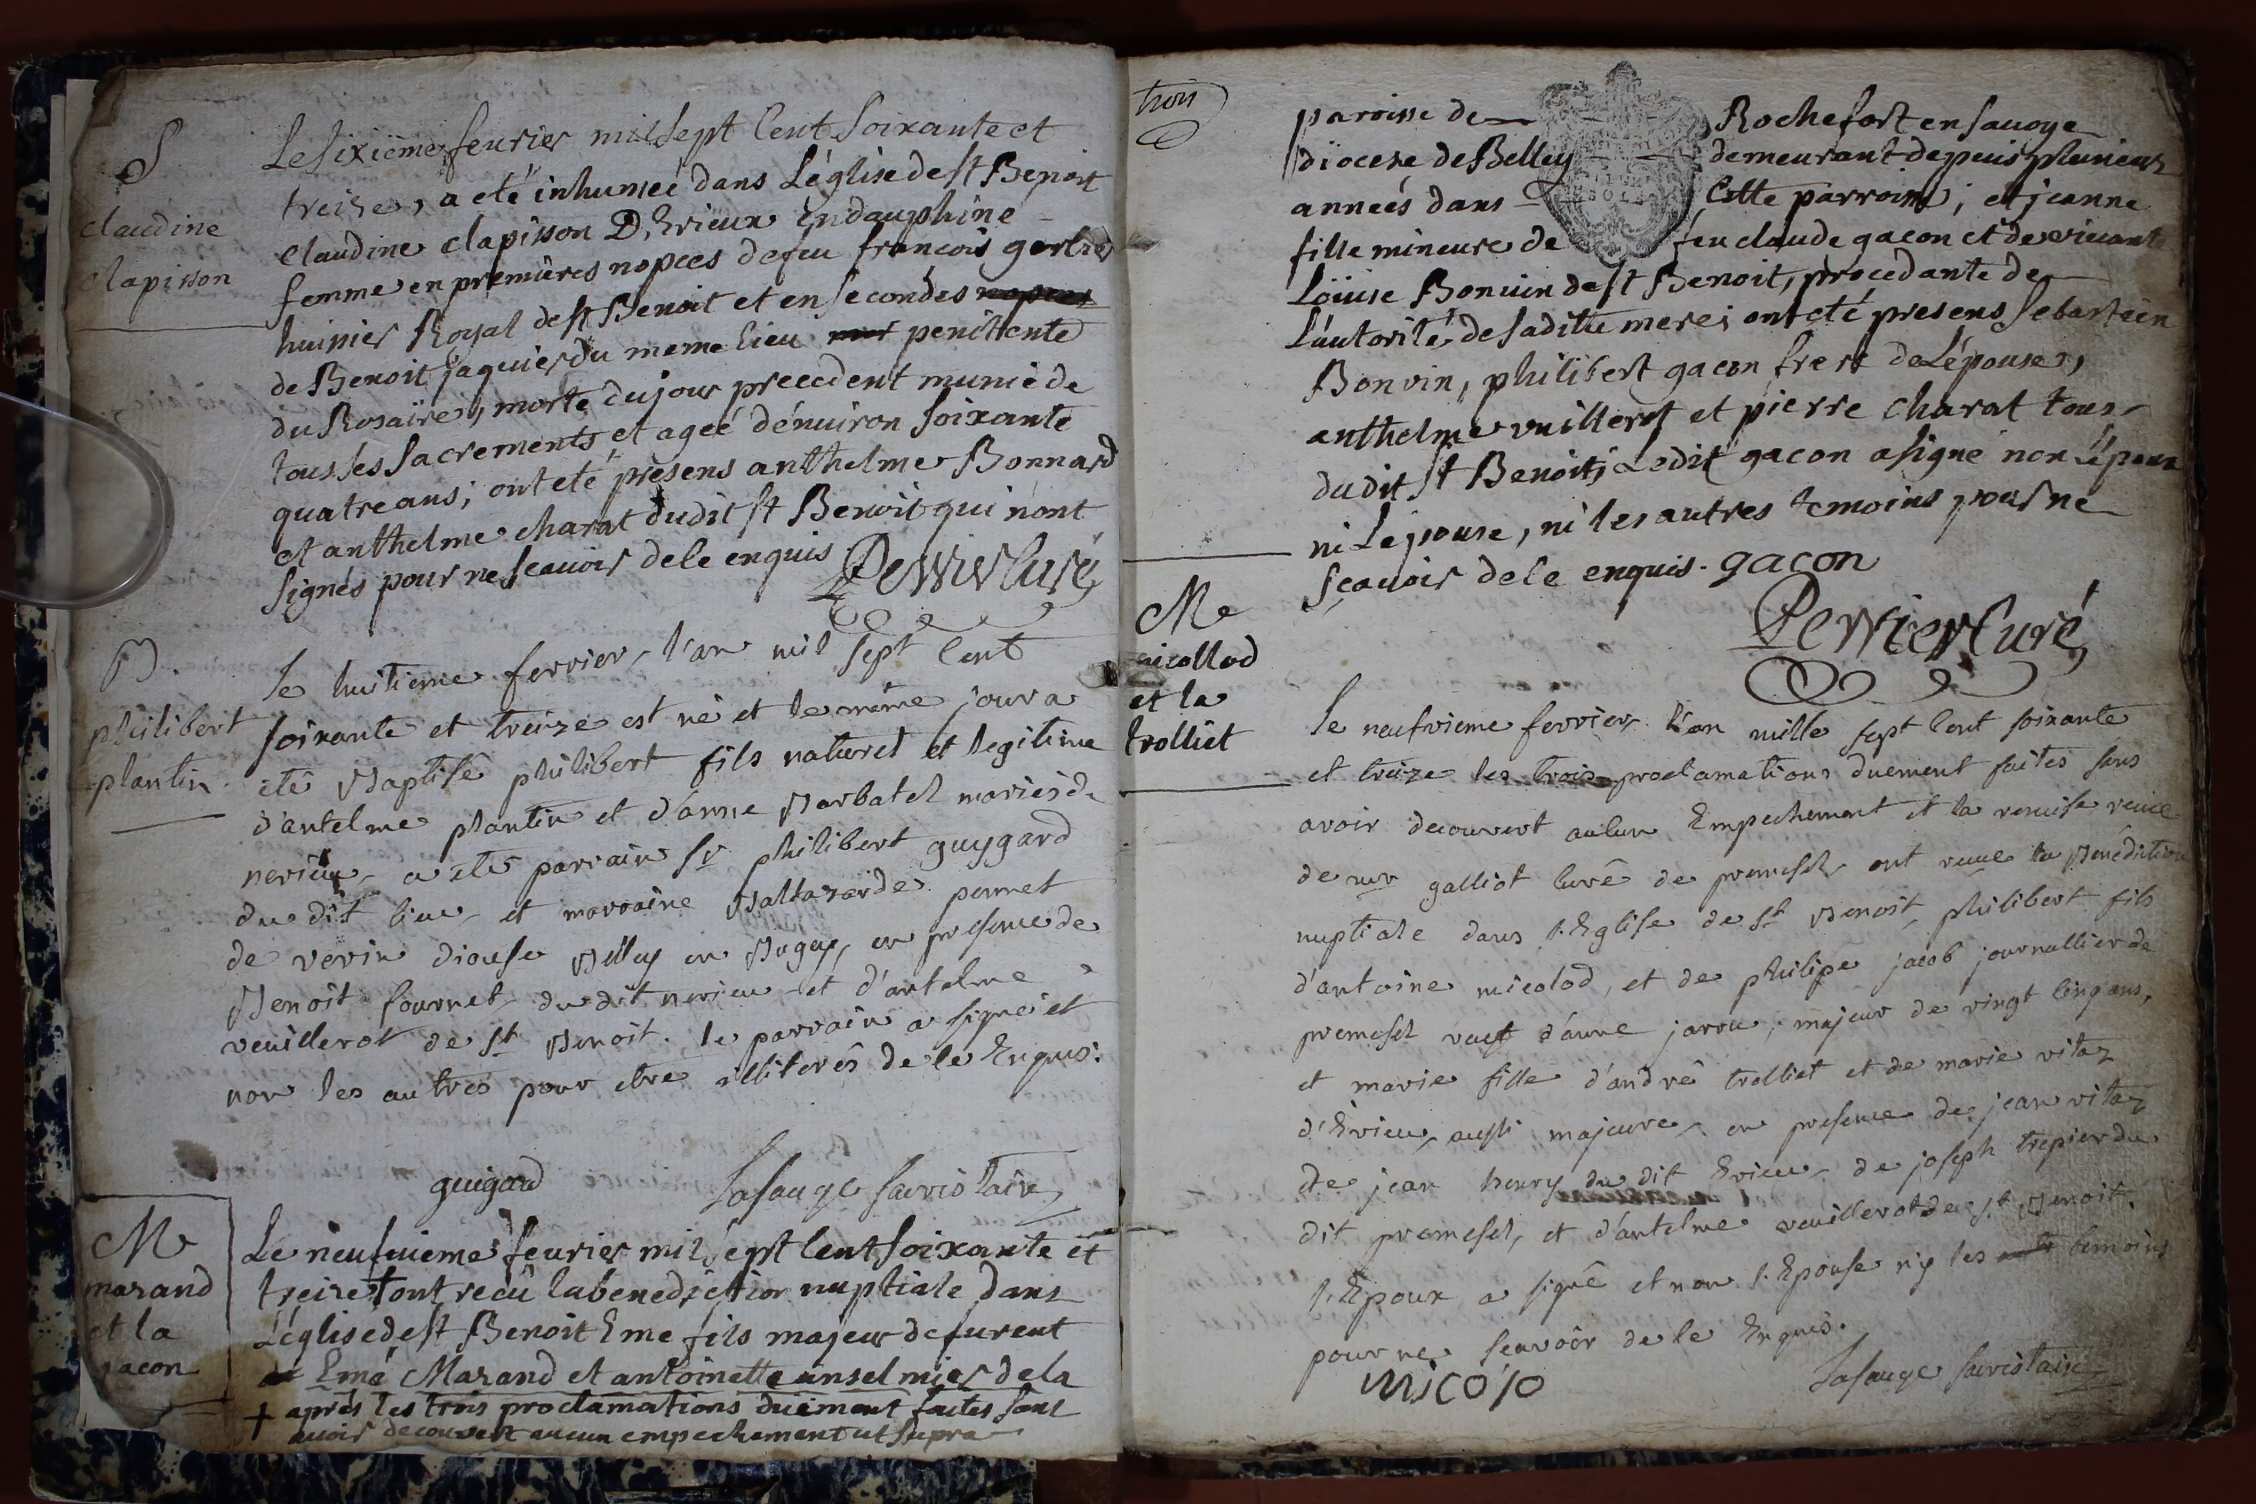 S
claudine
clapisson
Le sixième feurier mil sept Cent Soixante et
treize, a eté inhumeé dans L'église de st Benoit
claudine clapisson D'Erieux en dauphiné
femme en premières nopces de feu francois gerlier
huissier Royal de st Benoit et en secondes nopces
de Benoit jaquier du meme lieu penitente
du Rosaïre, morte du jour precedent munië de
tous les Sacrements et ageé dénuiron Soixante
quatre ans; ont eté presens anthelme Bonnard
et anthelme charat dudit st Benoit qui n'ont
Signés pour ne scauoir de le enquis Perrier Curé
B.
philibert
plantin.
le huitieme fevrier l'an mil sept Cent
soixante et treize est né et le même jour a
eté Baptisé philibert fils naturel et legitime
d'antelme plantin et d'anne Barbatel mariés de
nerieu a eté parrain sr philibert guygard
du dit lieu et marraine Baltazarde permet
de vevin diouse Belley en Bugey, en presence de
Benoit fournet du dit nerieu et d'antelme
veuillerot de st Benoit. le parrain a signé et
non les autres pour etre illiterés de le Enquis.
guigard Lasauge sacristain
M
mazand
et la
gacon
Le neufuieme feurier mil sept Cent soixante et
treize † ont recû la benediction nuptiale dans
L'église de st Benoit Eme fils majeur de furent
Emé Mazand et antoinette anselmier de la
† après les trois proclamations düement faites sans
auoir decouvert aucun empechement ut supra
trois
paroisse de Rochefort en sauoye
dïocese de Belley demeurant depuis plusieurs
anneés dans Cette parroisse; et jeanne
fille mineure de feu claude gacon et de viuante
Loüise Bonuin de st Benoit, procedante de
L'autorité de sa dite mere; ont eté presens Sebastien
Bonvin, philibert gacon frere de L'épouse,
anthelme vuillerot et pierre charat tous
dudit st Benoit; Ledit gacon a signé non L'époux
ni L'epouse, ni les autres temoins pour ne
sçauoir de le enquis. gacon
Perrier Curé
M
nicollod
et la
trolliet
le neufvieme fevrier l'an mille sept Cent soixante
et treize les trois proclamations duement faites sans
avoir decouvert aucun Empechement et la remise reuue
de mr galliot curé de premesel ont reuue la Benédiction
nuptiale dans l'Eglise de st Benoit, philibert fils
d'antoine micolod, et de philipe jacob journallier de
premesel veuf d'anne jarru, majeur de vingt Cinq ans,
et marie fille d'andré trolliet et de marie vitoz
d'Erieu, aussi majeure, en presence de jean vitoz
de jean henry du dit Erieu de joseph trepier du
dit premesel, et d'antelme veuillerot de st Benoit.
l'Epoux a signé et non l'Epouse n'y les temoins
pour ne scavoir de le Enquis.
micolo Lasauge sacristain